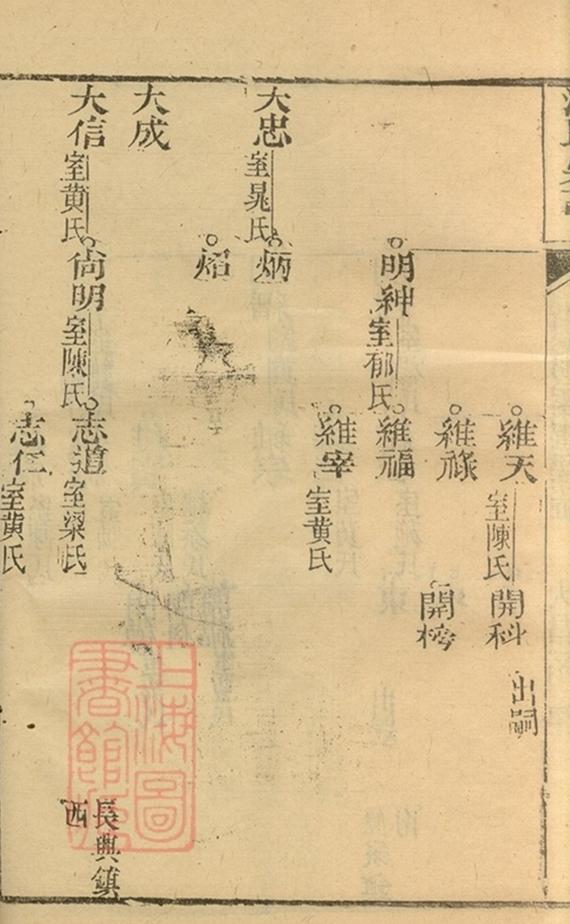 維天室陳氏
開科出嗣
維祿
開榜
明紳室郁氏
維福
維宰室黄氏
大忠室晁氏
炳
焰
大成
大信室黄氏
尙明室陳氏
志道室梁氏
長興鎮
西
志仁室黄氏
上海圖
書館藏